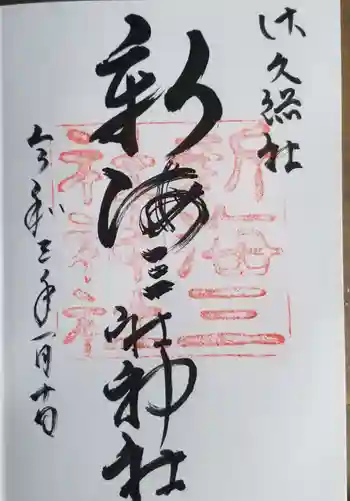 佐久総社
新海三社神社
令和三年一月十日
新海三社神社